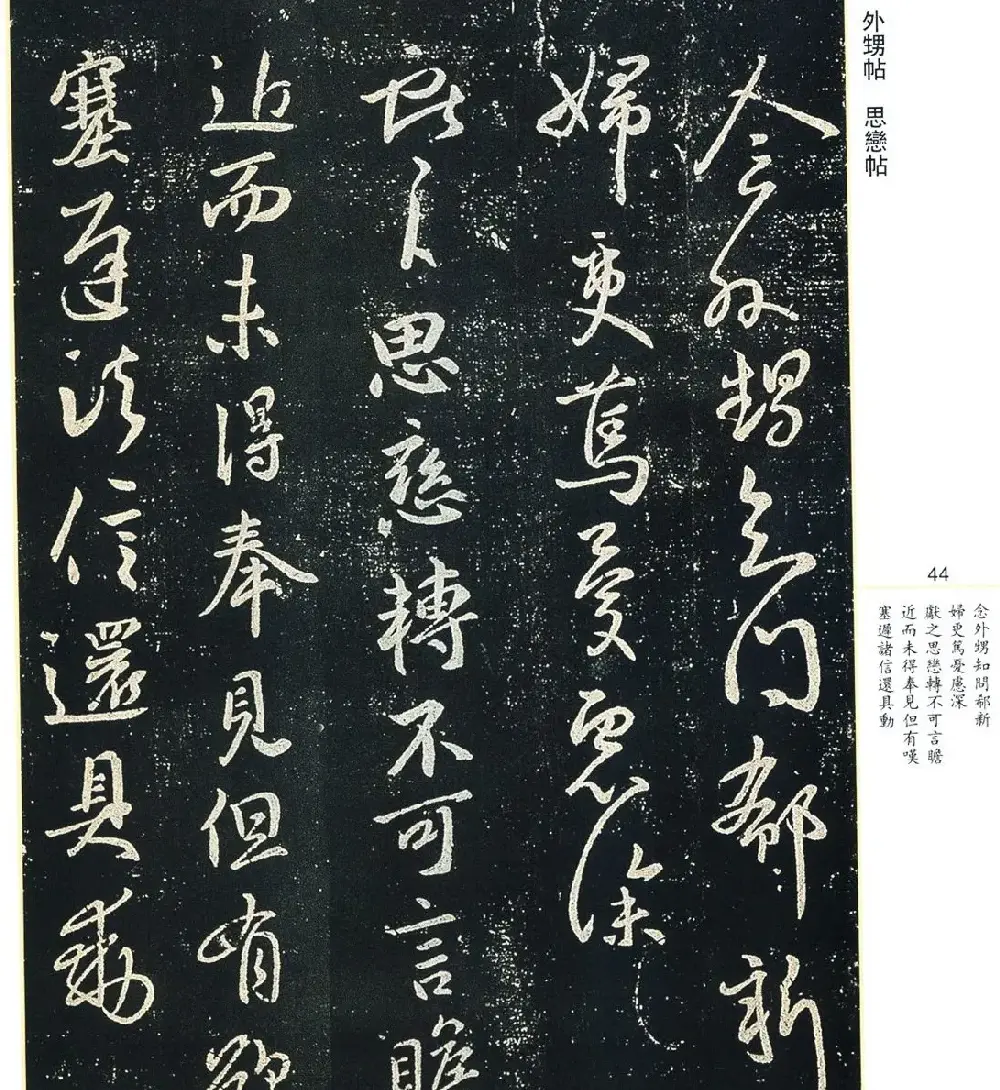 外甥帖 思戀帖
念外甥知問郗新
婦更篤憂慮深
獻之思戀轉不可言瞻
近而未得奉見但有歎
塞遲諸信還具動
44
念外甥知問郗新
婦更篤憂慮深
獻之思戀轉不可言瞻
近而未得奉見但有嘆
塞遲諸信還具動